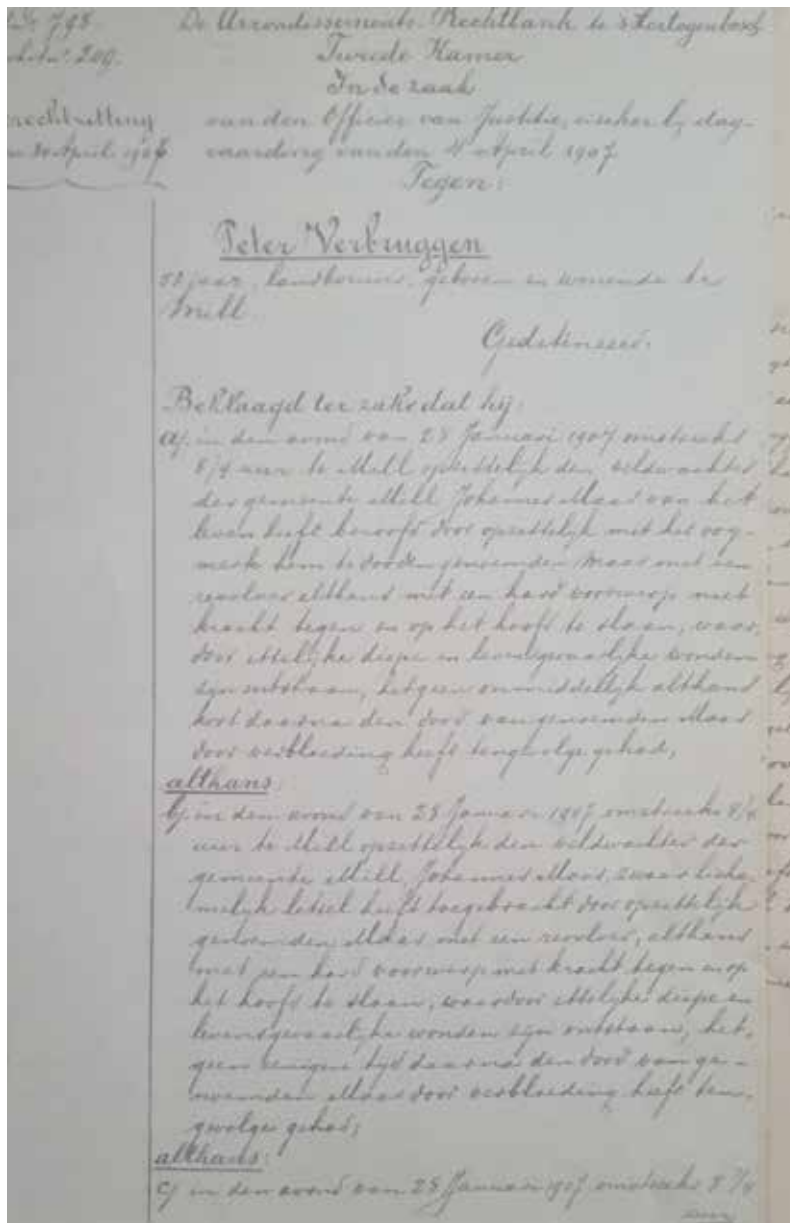 No 798. De Arrondissements-Rechtbank te 's Hertogenbosch
209. Tweede Kamer
In de zaak
rechtzitting van den Officier van Justitie, eischer bij dag-
April 1907 vaarding van den April 1907
Tegen:
Peter Verbruggen
jaar, landbouwer, geboren en wonende te
Mill
Gedetineerd.
Beklaagd ter zake dat hij:
a/ in den avond van 25 Januari 1907 omstreeks
8/4 uur te Mill opzettelijk den veldwachter
der gemeente Mill Johannes Maas van het
leven heeft beroofd door opzettelijk met het oog-
merk hem te dooden genoemden Maas met een
revolver althans met een hard voorwerp met
kracht tegen en op het hoofd te slaan, waar-
door ettelijke diepe en levensgevaarlijke wonden
zijn ontstaan, hetgeen onmiddellijk althans
kort daarna den dood van genoemden Maas
door verbloeding heeft tengevolge gehad;
althans:
b/ in den avond van 25 Januari 1907 omstreeks 8/4
uur te Mill opzettelijk den veldwachter der
gemeente Mill, Johannes Maas, zwaar licha-
melijk letsel heeft toegebracht door opzettelijk
genoemden Maas met een revolver, althans
met een hard voorwerp met kracht tegen en op
het hoofd te slaan, waardoor ettelijke diepe en
levensgevaarlijke wonden zijn ontstaan, het-
geen eenigen tijd daarna den dood van ge-
noemden Maas door verbloeding heeft ten-
gevolge gehad;
althans:
c/ in den avond van 25 Januari 1907 omstreeks 8 /4
uur